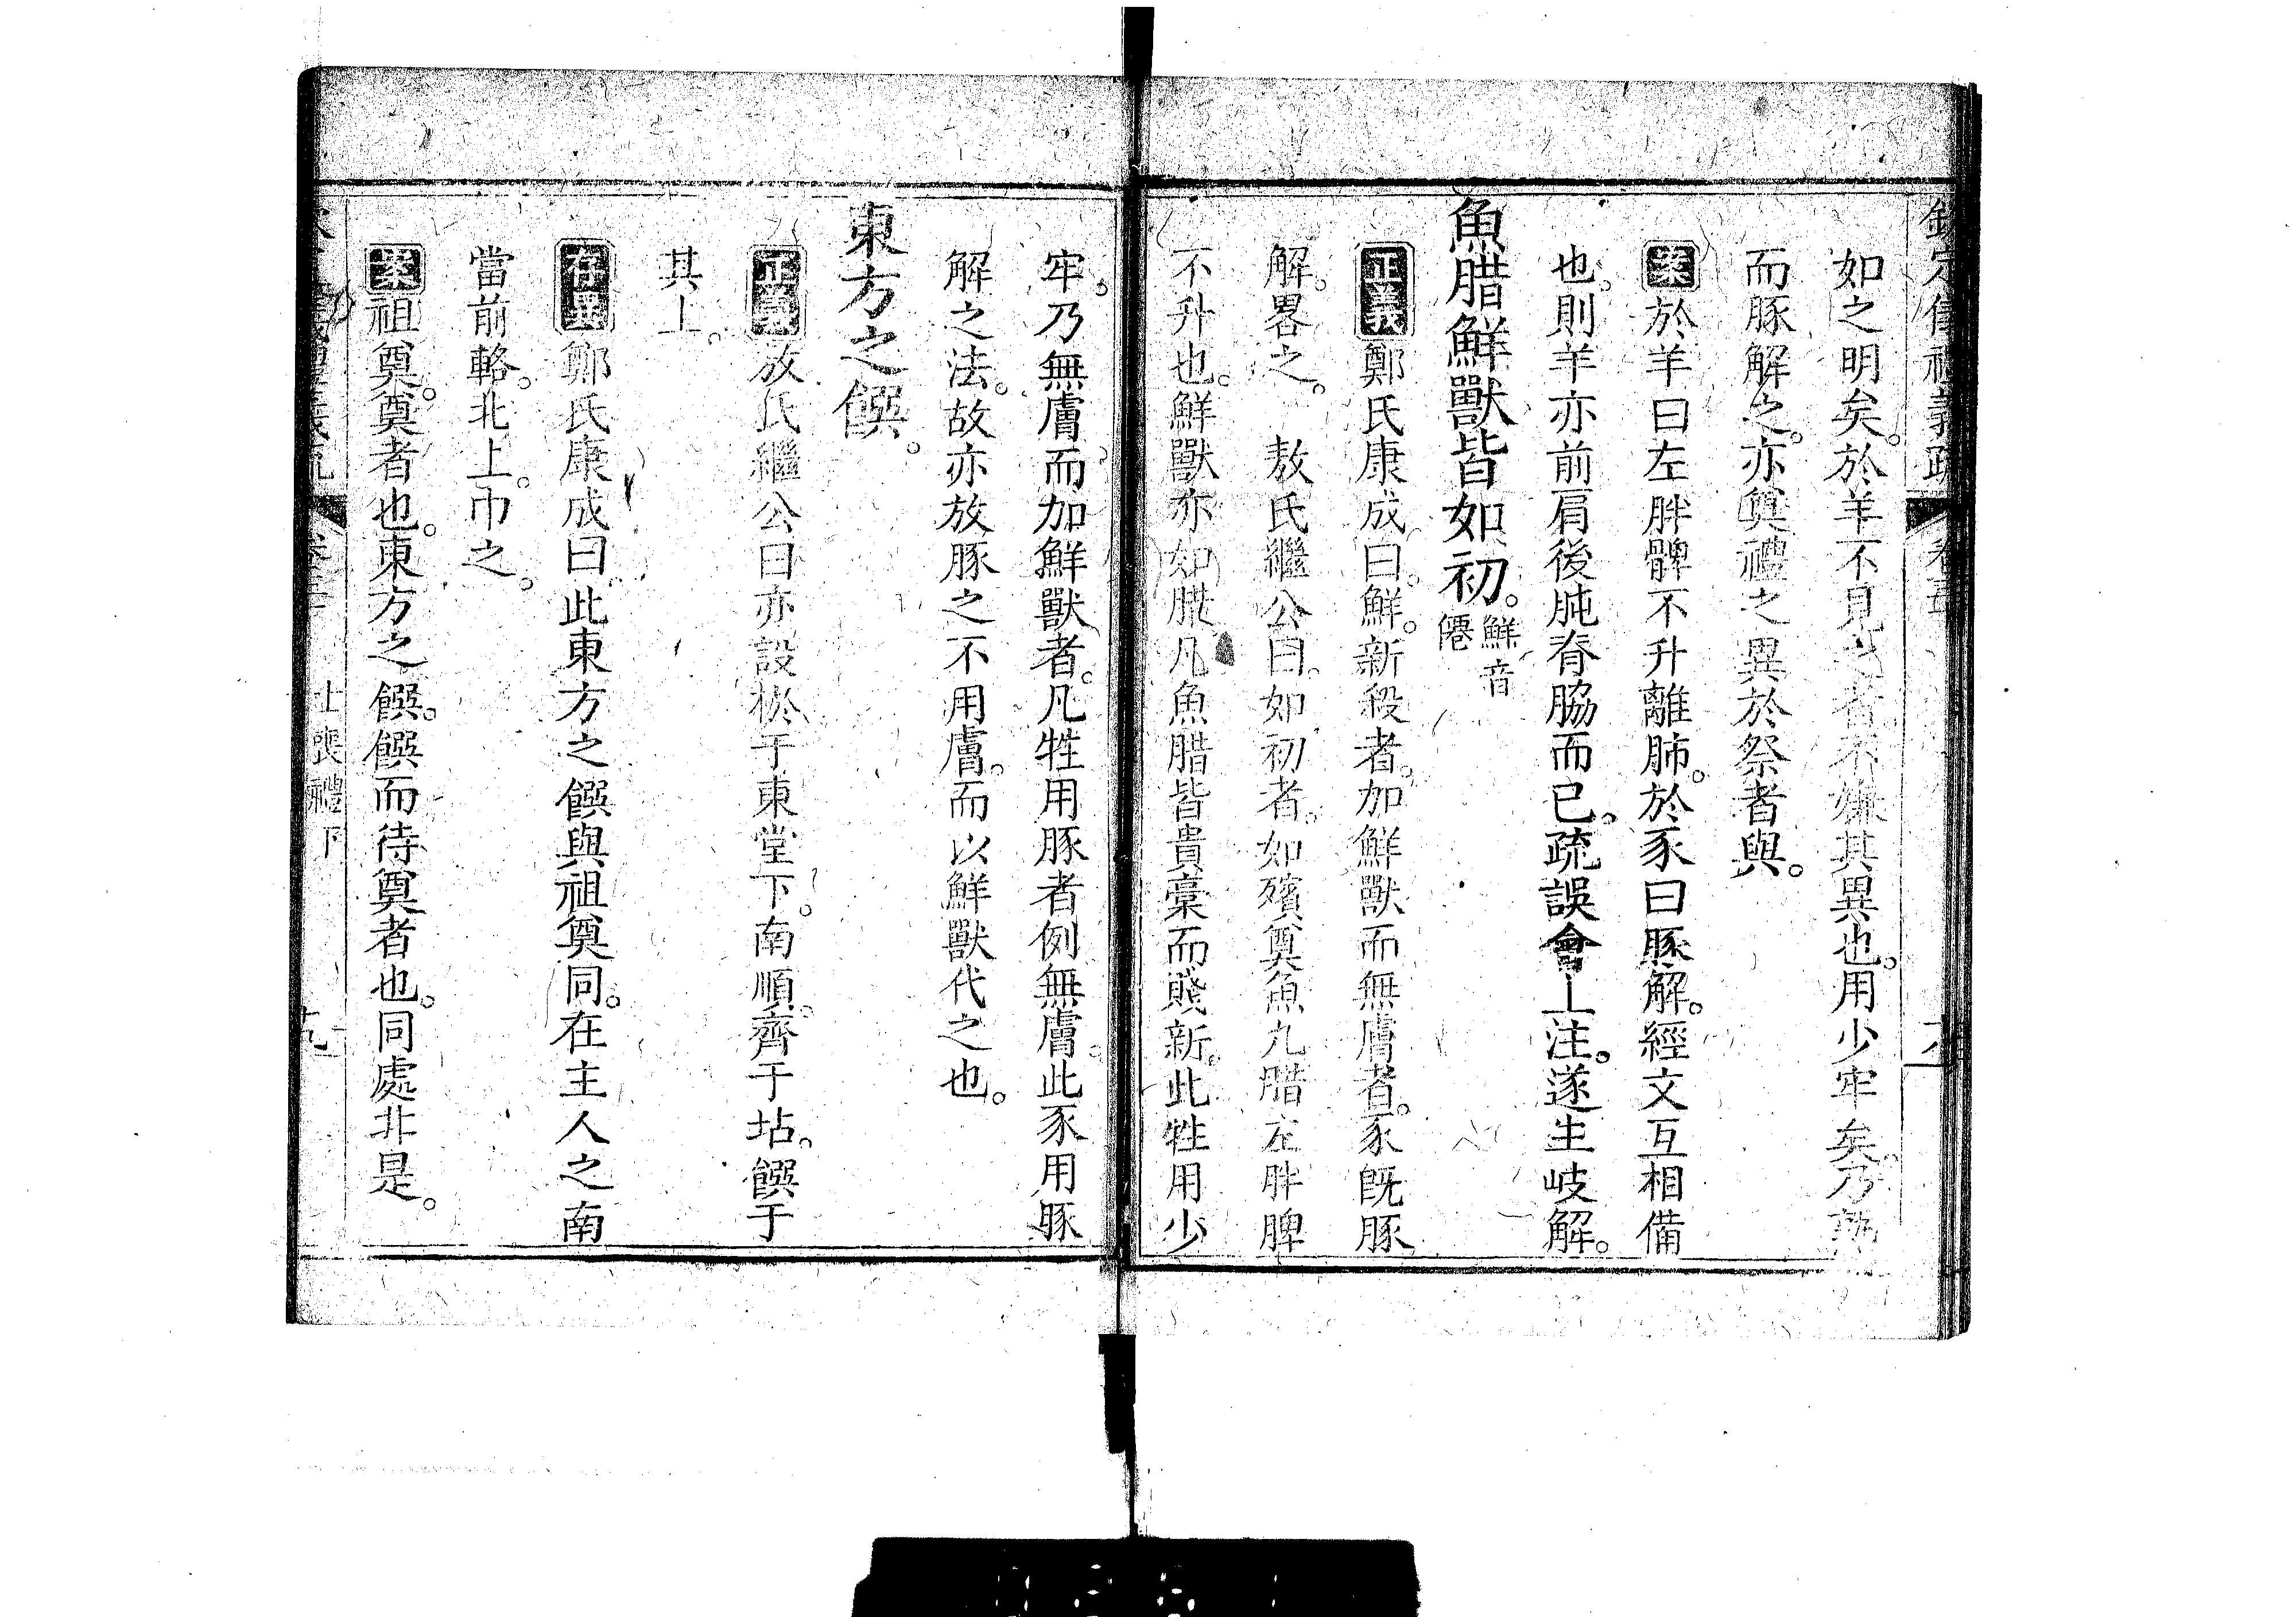 欽定儀禮義疏 卷三
如之明矣。於羊不見之者不嫌其異也。用少牢矣。乃
而豚解之。亦奠禮之異於祭者與。
案於羊曰左胖髀不升離肺。於豕曰豚解。經文互相備
也。則羊亦前肩後肫脊脇而已。疏誤會上注。遂生歧解。
魚腊鮮獸皆如初。鮮音僊
正義鄭氏康成曰。鮮。新殺者。加鮮獸而無膚者。豕既豚
解。畧之。 敖氏繼公曰。如初者。如殯奠魚九腊左胖髀
不升也。鮮獸亦如腊。凡魚腊皆貴槀而賤新。此牲用少
牢。乃無膚而加鮮獸者。凡牲用豚者例無膚。此豕用豚
解之法。故亦放豚之不用膚。而以鮮獸代之也。
東方之饌。
正義敖氏繼公曰亦設棜于東堂下。南順。齊于坫。饌于
其上。
存異鄭氏康成曰此東方之饌與祖奠同。在主人之南
當前輅。北上。巾之。
案祖奠。奠者也。東方之饌。饌而待奠者也。同處非是。
士喪禮下 九